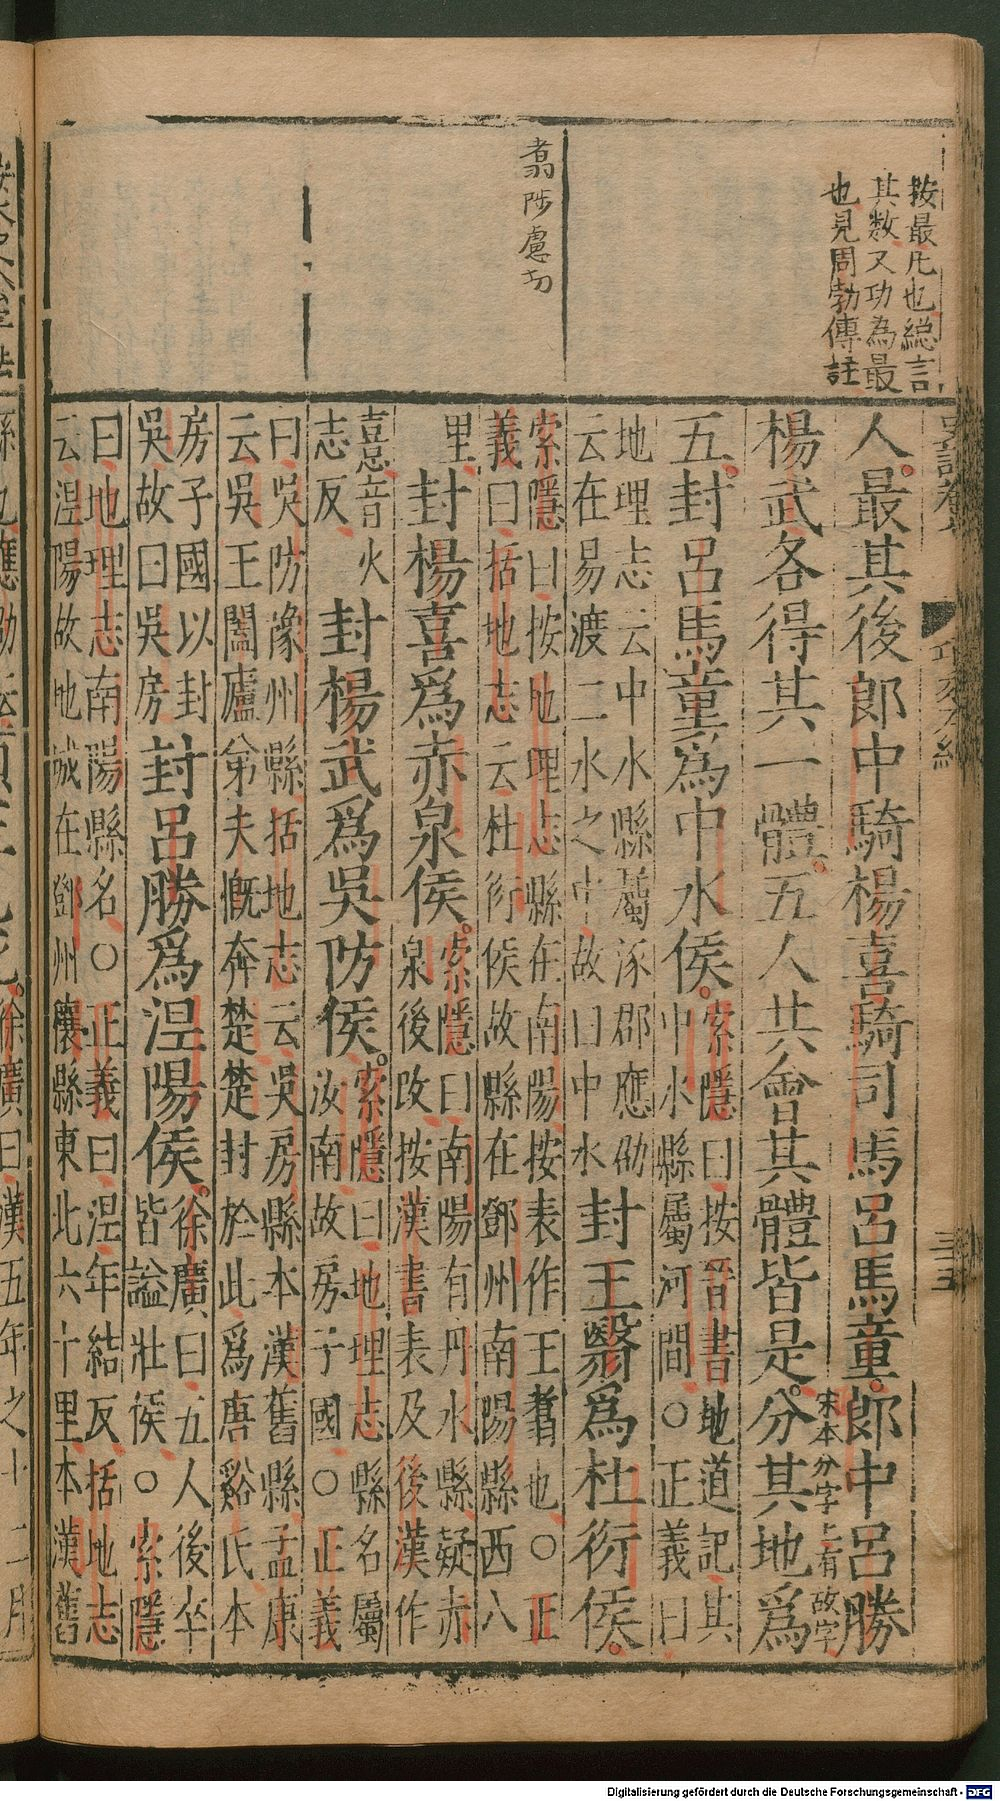 按最凢也総言
其数又功為最
也見周勃傳註
翥陟慮切
三五
人最其後郎中騎楊喜騎司馬呂馬童郎中呂勝
宋本分字上有故字
楊武各得其一體五人共會其體皆是分其地爲
五封呂馬童爲中水侯
索隱曰按晉書地道記其
中水縣屬河間○正義曰
地理志云中水縣屬涿郡應劭
云在易渡二水之中故曰中水
封王翳爲杜衍侯
索隱曰按地理志縣在南陽按表作王翥也○正
義曰括地志云杜衍侯故縣在鄧州南陽縣西八
里
封楊喜爲赤泉侯
索隱曰南陽有丹水縣疑赤
泉後改按漢書表及後漢作
憙音火
志反
封楊武爲吳防侯
索隱曰地理志縣名屬
汝南故房子國○正義
曰吳防豫州縣括地志云吳房縣本漢舊縣孟康
云吳王闔廬弟夫概奔楚楚封於此爲唐谿氏本
房子國以封
吳故曰吳房
封呂勝爲涅陽侯
徐廣曰五人後卒
皆謚壯侯○索隱
曰地理志南陽縣名○正義曰涅年結反括地志
云涅陽故城在鄧州穰縣東北六十里本漢舊
縣也應劭
徐廣曰漢五年之十二月
Digitalisierung gefördert durch die Deutsche Forschungsgemeinschaft - DFG